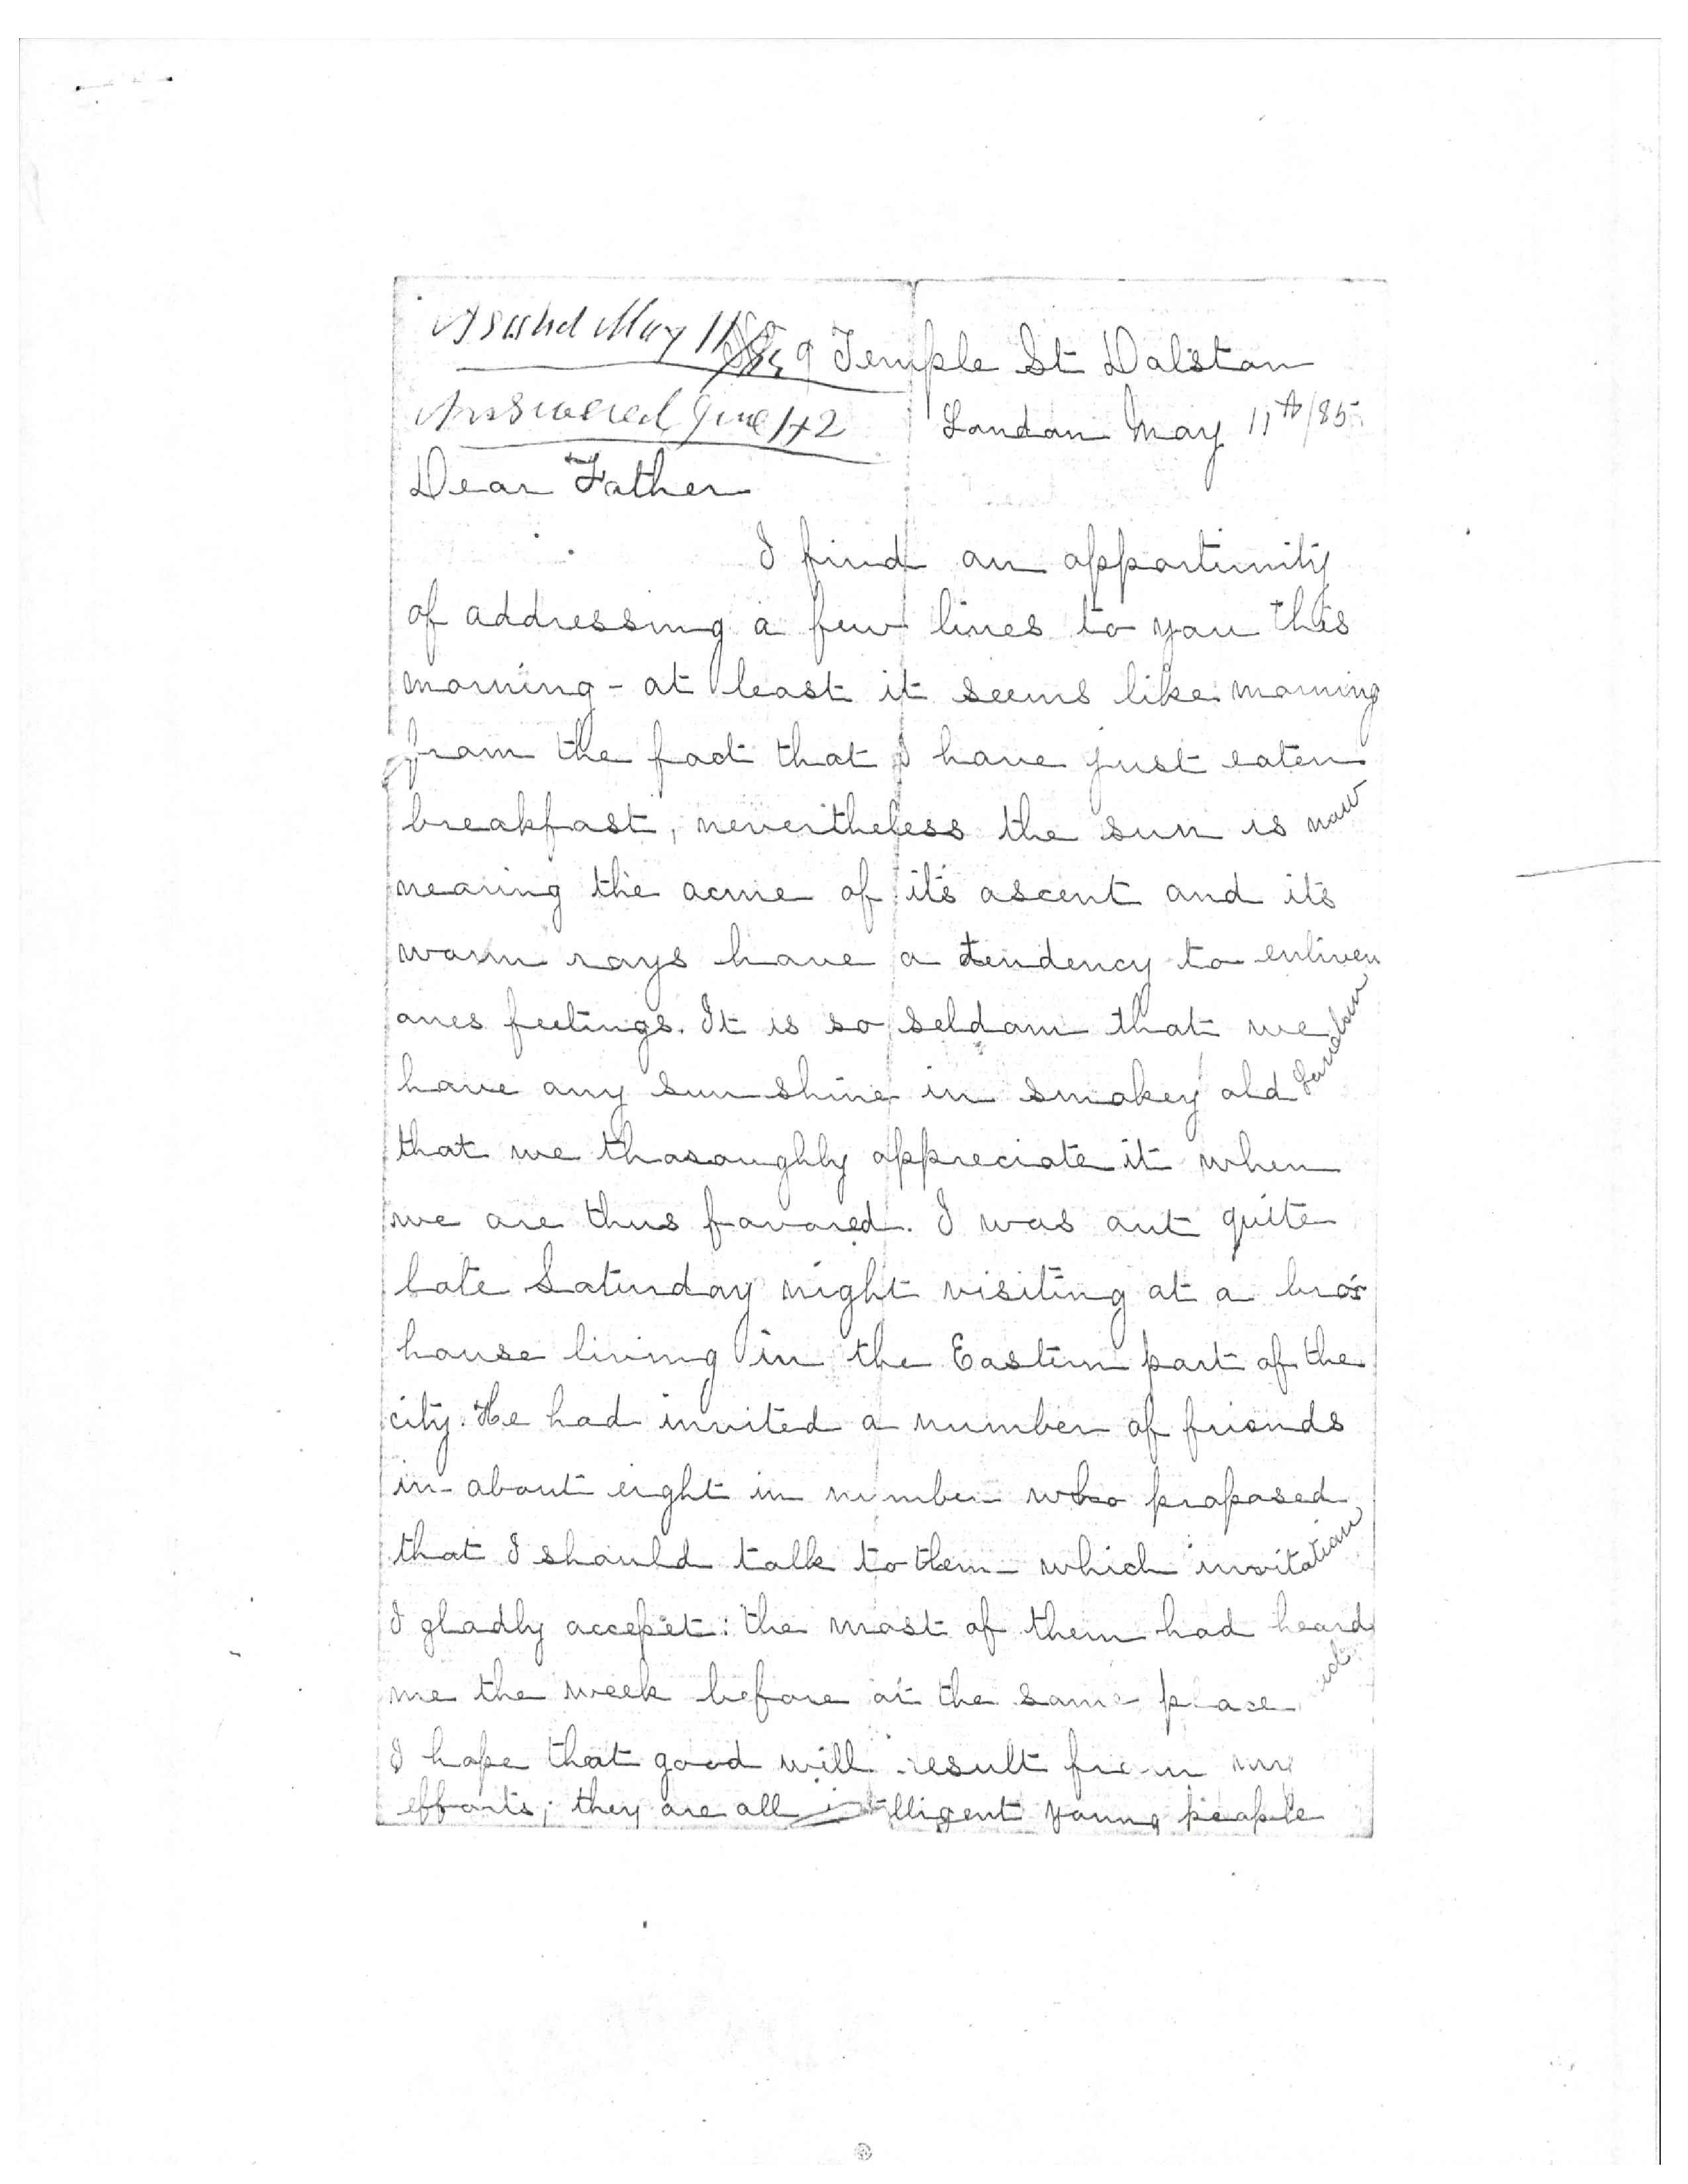 May 11
9 Temple St Dalston
Answered June 1+2
London May 11th/85
Dear Father
I find an opportunity
of addressing a few lines to you this
morning - at least it seems like morning
from the fact that I have just eaten
breakfast, nevertheless the sun is now
nearing the acme of it's ascent and its
warm rays have a tendency to enliven
ones feelings. It is so seldom that we
have any sunshine in smokey old London
that we thoroughly appreciate it when
we are thus favored. I was out quite
late Saturday night visiting at a bro's
house living in the Eastern part of the
city. He had invited a number of friends
in - about eight in number who proposed
that I should talk to them - which invitation
I gladly accept: the most of them had heard
me the week before at the same place
I hope that good will result from my
efforts; they are all intelligent young people